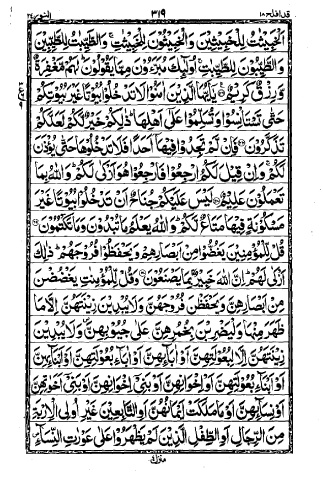 قد افلح ١٨ ٣١٩ النور ٢٤
اَلْخَبِيْثٰتُ لِلْخَبِيْثِيْنَ وَالْخَبِيْثُوْنَ لِلْخَبِيْثٰتِ ۚ وَالطَّيِّبٰتُ لِلطَّيِّبِيْنَ
وَالطَّيِّبُوْنَ لِلطَّيِّبٰتِ ۚ اُولٰٓئِكَ مُبَرَّءُوْنَ مِمَّا يَقُوْلُوْنَ ؕ لَهُمْ مَّغْفِرَةٌ
وَّرِزْقٌ كَرِيْمٌ يٰٓاَيُّهَا الَّذِيْنَ اٰمَنُوْا لَا تَدْخُلُوْا بُيُوْتًا غَيْرَ بُيُوْتِكُمْ
حَتّٰى تَسْتَاْنِسُوْا وَتُسَلِّمُوْا عَلٰٓى اَهْلِهَا ؕ ذٰلِكُمْ خَيْرٌ لَّكُمْ لَعَلَّكُمْ
تَذَكَّرُوْنَ فَاِنْ لَّمْ تَجِدُوْا فِيْهَاۤ اَحَدًا فَلَا تَدْخُلُوْهَا حَتّٰى يُؤْذَنَ
لَكُمْ ۚ وَاِنْ قِيْلَ لَكُمُ ارْجِعُوْا فَارْجِعُوْا هُوَ اَزْكٰى لَكُمْ ؕ وَاللّٰهُ بِمَا
تَعْمَلُوْنَ عَلِيْمٌ لَيْسَ عَلَيْكُمْ جُنَاحٌ اَنْ تَدْخُلُوْا بُيُوْتًا غَيْرَ
مَسْكُوْنَةٍ فِيْهَا مَتَاعٌ لَّكُمْ ؕ وَاللّٰهُ يَعْلَمُ مَا تُبْدُوْنَ وَمَا تَكْتُمُوْنَ
قُلْ لِّلْمُؤْمِنِيْنَ يَغُضُّوْا مِنْ اَبْصَارِهِمْ وَيَحْفَظُوْا فُرُوْجَهُمْ ؕ ذٰلِكَ
اَزْكٰى لَهُمْ ؕ اِنَّ اللّٰهَ خَبِيْرٌۢ بِمَا يَصْنَعُوْنَ وَقُلْ لِّلْمُؤْمِنٰتِ يَغْضُضْنَ
مِنْ اَبْصَارِهِنَّ وَيَحْفَظْنَ فُرُوْجَهُنَّ وَلَا يُبْدِيْنَ زِيْنَتَهُنَّ اِلَّا مَا
ظَهَرَ مِنْهَا وَلْيَضْرِبْنَ بِخُمُرِهِنَّ عَلٰى جُيُوْبِهِنَّ ۪ وَلَا يُبْدِيْنَ
زِيْنَتَهُنَّ اِلَّا لِبُعُوْلَتِهِنَّ اَوْ اٰبَآئِهِنَّ اَوْ اٰبَآءِ بُعُوْلَتِهِنَّ اَوْ اَبْنَآئِهِنَّ
اَوْ اَبْنَآءِ بُعُوْلَتِهِنَّ اَوْ اِخْوَانِهِنَّ اَوْ بَنِيْۤ اِخْوَانِهِنَّ اَوْ بَنِيْۤ اَخَوٰتِهِنَّ
اَوْ نِسَآئِهِنَّ اَوْ مَا مَلَكَتْ اَيْمَانُهُنَّ اَوِ التّٰبِعِيْنَ غَيْرِ اُولِى الْاِرْبَةِ
مِنَ الرِّجَالِ اَوِ الطِّفْلِ الَّذِيْنَ لَمْ يَظْهَرُوْا عَلٰى عَوْرٰتِ النِّسَآءِ